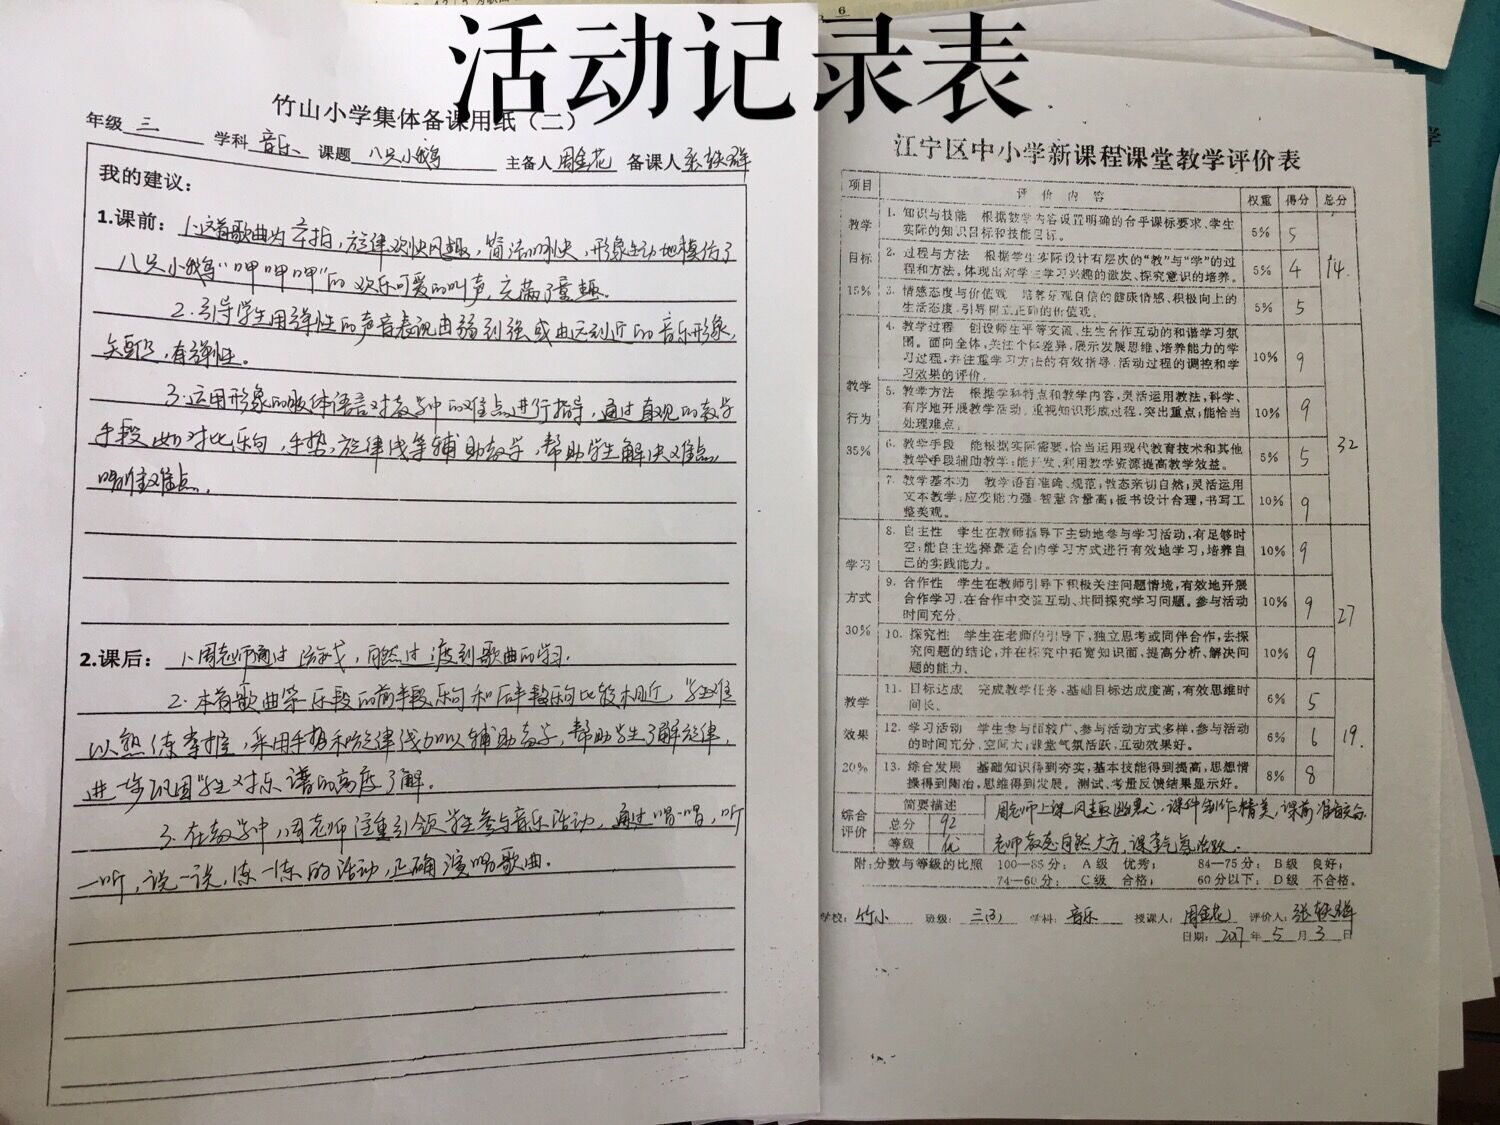 活动记录表
竹山小学集体备课用纸（二）
年级 三 学科 音乐 课题 八只小鹅 主备人 周金花 备课人 张轶群
我的建议：
1.课前： 1.这首歌曲为2/4拍，旋律欢快风趣，简洁明快，形象生动地模仿了
八只小鹅“呷呷呷”的欢乐可爱的叫声，充满了童趣。
2.引导学生用弹性的声音表现由弱到强或由远到近的音乐形象，
有弹性。
3.运用形象的肢体语言对教学中的难点进行指导，通过直观的教学
手段如对比乐句，手势，旋律线等辅助教学，帮助学生解决难点，
唱准难点。
2.课后： 1.周老师通过游戏，自然过渡到歌曲的学习。
2.本首歌曲第一乐段的前半段乐句和后半段乐句比较相近，学生难
以熟练掌握，采用手势和旋律线加以辅助教学，帮助学生了解旋律，
进一步巩固学生对乐谱的高度了解。
3.在教学中，周老师注重引领学生参与音乐活动，通过唱一唱，听
一听，说一说，练一练的活动，正确演唱歌曲。
江宁区中小学新课程课堂教学评价表
项目 评价内容 权重 得分 总分
教学目标 15%
1. 知识与技能 根据教学内容设置明确的合乎课标要求、学生
实际的知识目标和技能目标。 5% 5
2. 过程与方法 根据学生实际设计有层次的“教”与“学”的过
程和方法，体现出对学生学习兴趣的激发、探究意识的培养。 5% 4 14.
3. 情感态度与价值观 培养乐观自信的健康情感、积极向上的
生活态度，引导树立正确的价值观。 5% 5
教学行为 35%
4. 教学过程 创设师生平等交流、生生合作互动的和谐学习氛
围。面向全体，关注个体差异，展示发展思维、培养能力的学
习过程，并注重学习方法的有效指导、活动过程的调控和学
习效果的评价。 10% 9
5. 教学方法 根据学科特点和教学内容，灵活运用教法，科学、
有序地开展教学活动，重视知识形成过程，突出重点；能恰当
处理难点； 10% 9
6. 教学手段 能根据实际需要，恰当运用现代教育技术和其他
教学手段辅助教学；能开发、利用教学资源提高教学效益。 5% 5 32
7. 教学基本功 教学语言准确、规范；教态亲切自然；灵活运用
文本教学；应变能力强，智慧含量高；板书设计合理，书写工
整美观。 10% 9
学习方式 30%
8. 自主性 学生在教师指导下主动地参与学习活动，有足够时
空；能自主选择最适合的学习方式进行有效地学习，培养自
己的实践能力。 10% 9
9. 合作性 学生在教师引导下积极关注问题情境，有效地开展
合作学习，在合作中交流互动、共同探究学习问题。参与活动
时间充分。 10% 9 27
10. 探究性 学生在老师的引导下，独立思考或同伴合作，去探
究问题的结论，并在探究中拓宽知识面，提高分析、解决问
题的能力。 10% 9
教学效果 20%
11. 目标达成 完成教学任务，基础目标达成度高，有效思维时
间长。 6% 5
12. 学习活动 学生参与面较广、参与活动方式多样，参与活动
的时间充分，空间大；课堂气氛活跃，互动效果好。 6% 6 19.
13. 综合发展 基础知识得到夯实，基本技能得到提高，思想情
操得到陶冶，思维得到发展。测试、考量反馈结果显示好。 8% 8
综合评价 简要描述 周老师上课，风趣幽默，课件制作精美，课前准备充分
总分 92
等级 优 老师教态自然大方，课堂气氛活跃。
附：分数与等级的比照 100—85分： A级 优秀； 84—75分： B级 良好；
74—60分： C级 合格； 60分以下： D级 不合格。
学校： 竹小 班级： 三(3) 学科： 音乐 授课人： 周金花 评价人： 张轶群
日期： 2017 年 5 月 3 日